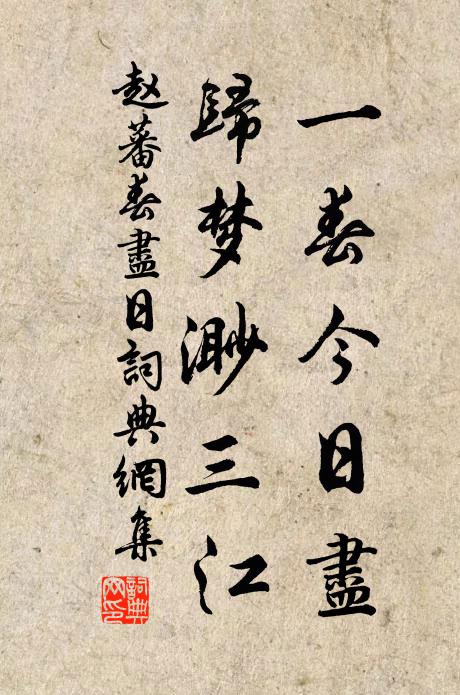 一春今日盡
歸梦渺三江
赵蕃春盡日詞典網集
詞典
网印